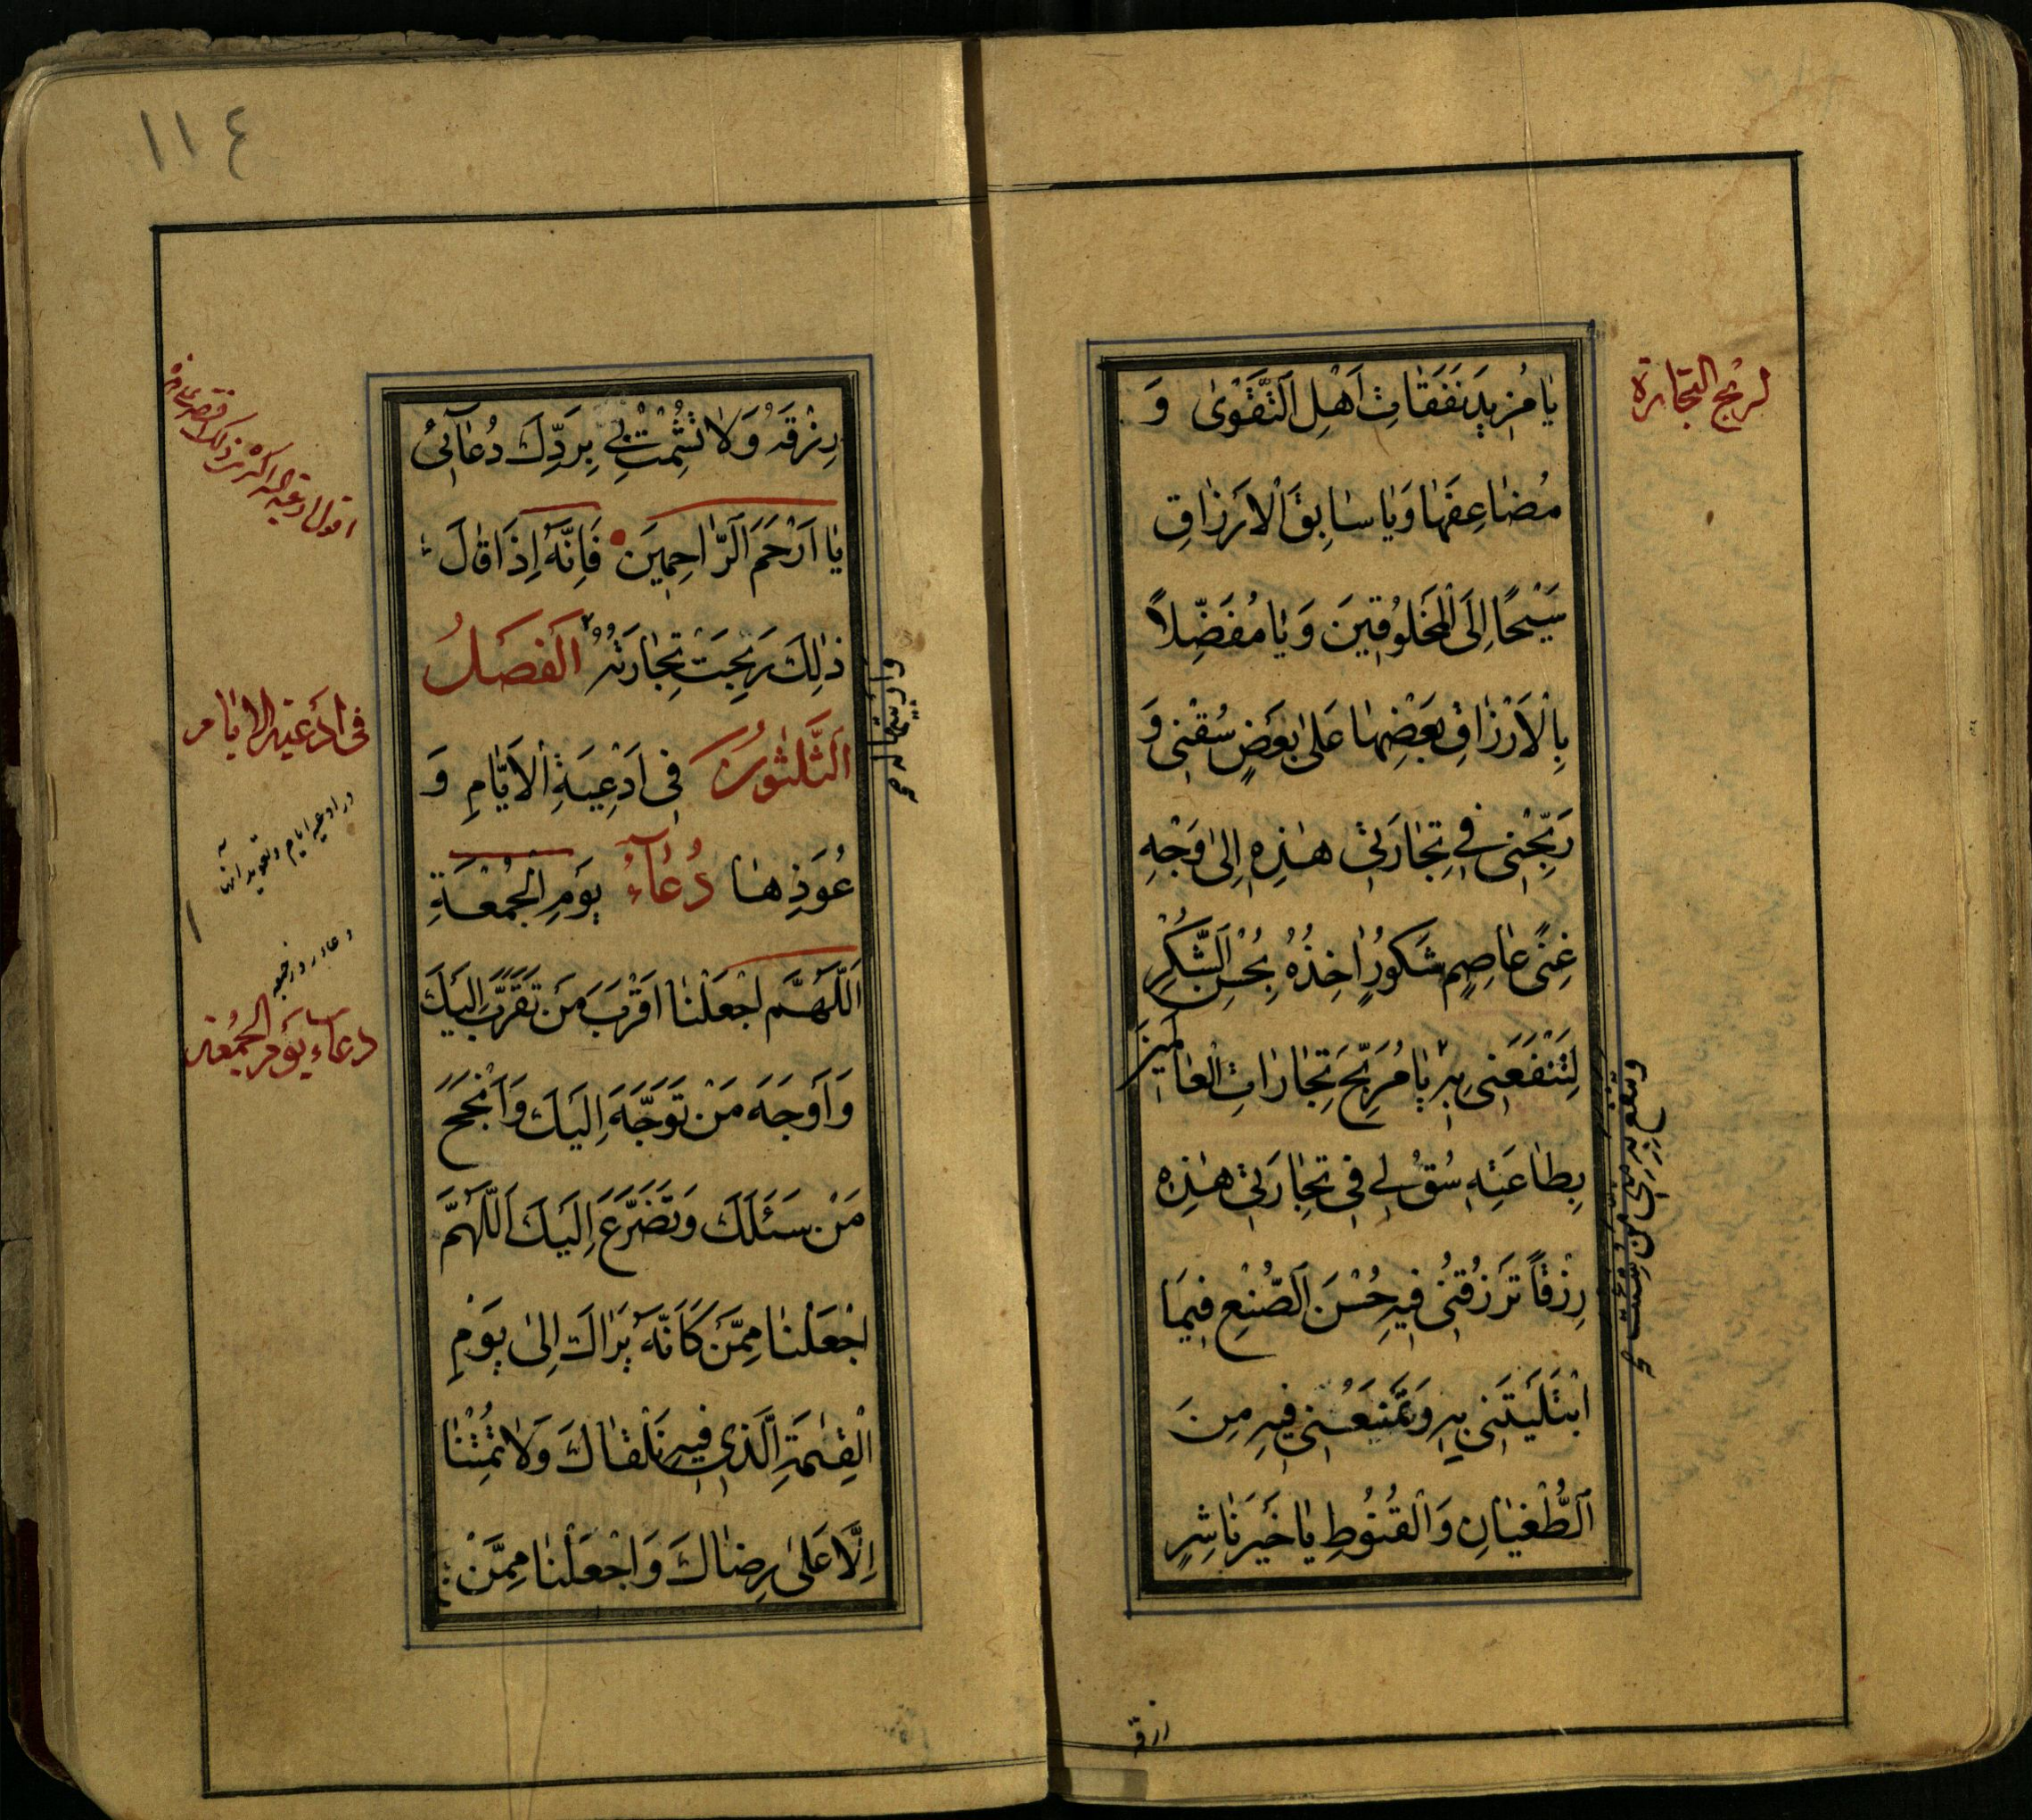 لربح التجارة
يٰا مُزيدَ نَفَقٰاتِ اَهْلِ التَّقْوىٰ وَ
مُضٰاعِفَهٰا وَيٰا سٰابِقَ الْاَرْزٰاقِ
سَيْحًا اِلَى الْمَخْلُوقينَ وَ يٰا مُفَضِّلاً
بِالْاَرْزٰاقِ بَعْضِهٰا عَلىٰ بَعْضٍ سُقْنى وَ
رَبِّحْنى فى تِجٰارَتى هٰذِهِ اِلىٰ وَجْهِ
غِنًى عٰاصِمٍ شَكُورٍ اٰخِذُهُ بِحُسْنِ الشُّكْرِ
لِتَنْفَعَنى بِهِ يٰا مُرَبِّحَ تِجٰارٰاتِ الْعٰالَمينَ
بِطٰاعَتِهِ سُقْ لى فى تِجٰارَتى هٰذِهِ
رِزْقاً تَرْزُقُنى فيهِ حُسْنَ الصُّنْعِ فيمَا
ابْتَلَيْتَنى بِهِ وَتَمْنَعُنى فيهِ مِنَ
الطُّغْيٰانِ وَالْقُنُوطِ يٰا خَيْرَ نٰاشِرٍ
١١٤
رِزْقَهُ وَلٰا تُشْمِتْ بى بِرَدِّكَ دُعٰآئى
يٰا اَرْحَمَ الرّٰاحِمينَ فَاِنَّهُ اِذٰا قٰالَ
ذٰلِكَ رَبِحَتْ تِجٰارَتُهُ اَلْفَصْلُ
الثَّلٰثُونَ فى اَدْعِيَةِ الْاَيّٰامِ وَ
عُوَذِهٰا دُعٰآءُ يَوْمِ الْجُمْعَةِ
اَللّٰهُمَّ اجْعَلْنٰا اَقْرَبَ مَنْ تَقَرَّبَ اِلَيْكَ
وَ اَوْجَهَ مَنْ تَوَجَّهَ اِلَيْكَ وَ اَنْجَحَ
مَنْ سَئَلَكَ وَ تَضَرَّعَ اِلَيْكَ اَللّٰهُمَّ
اجْعَلْنٰا مِمَّنْ كَاَنَّهُ يَرٰاكَ اِلىٰ يَوْمِ
الْقِيٰمَةِ الَّذى فيهِ نَلْقٰاكَ وَلٰا تُمِتْنٰا
اِلّٰا عَلىٰ رِضٰاكَ وَ اجْعَلْنٰا مِمَّنْ
فى ادعية الايام
در ادعيه ايام وتعويذ آنها
دعاء روز جمعه
دعاء يوم الجمعة